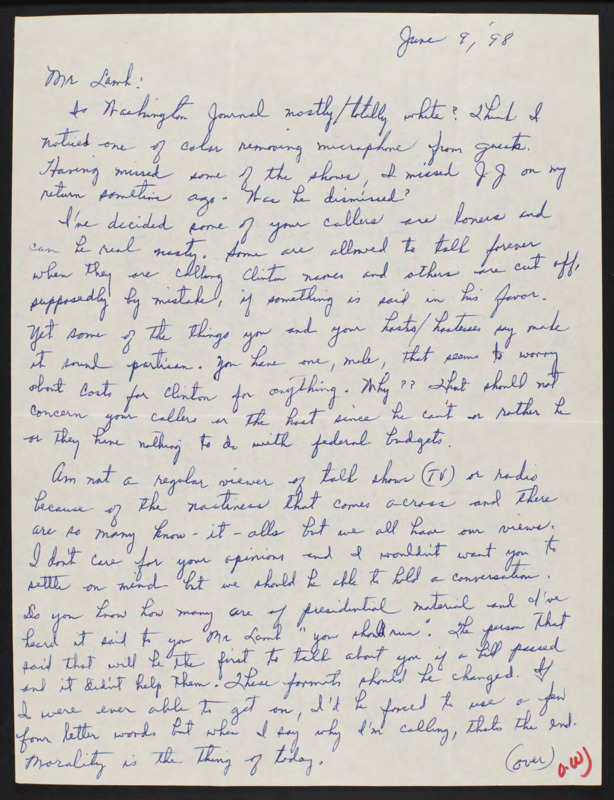 June 9, '98
Mr Lamb:
Is Washington Journal mostly/totally white? Think I
noticed one of color removing microphone from guests.
Having missed some of the shows, I missed J J on my
return sometime ago. Was he dismissed?
I've decided some of your callers are loners and
can be real nasty. Some are allowed to talk forever
when they are calling Clinton names and others are cut off,
supposedly by mistake, if something is said in his favor.
Yet some of the things you and your hosts/hostesses say make
it sound partisan. You have one, male, that seems to worry
about costs for Clinton for anything. Why?? That should not
concern your callers or the host since he can't or rather he
or they have nothing to do with federal budgets.
Am not a regular viewer of talk shows (TV) or radio
because of the nastiness that comes across and there
are so many know-it-alls but we all have our views.
I don't care for your opinions and I wouldn't want you to
settle on mind but we should be able to hold a conversation.
Do you know how many are of presidential material and I've
heard it said to you Mr Lamb "you should run". The person that
said that will be the first to talk about you if a bill passed
and it didn't help them. These formats should be changed. If
I were ever able to get on, I'd be forced to use a few
four letter words but when I say why I'm calling, thats the end.
Morality is the thing of today.
(over)